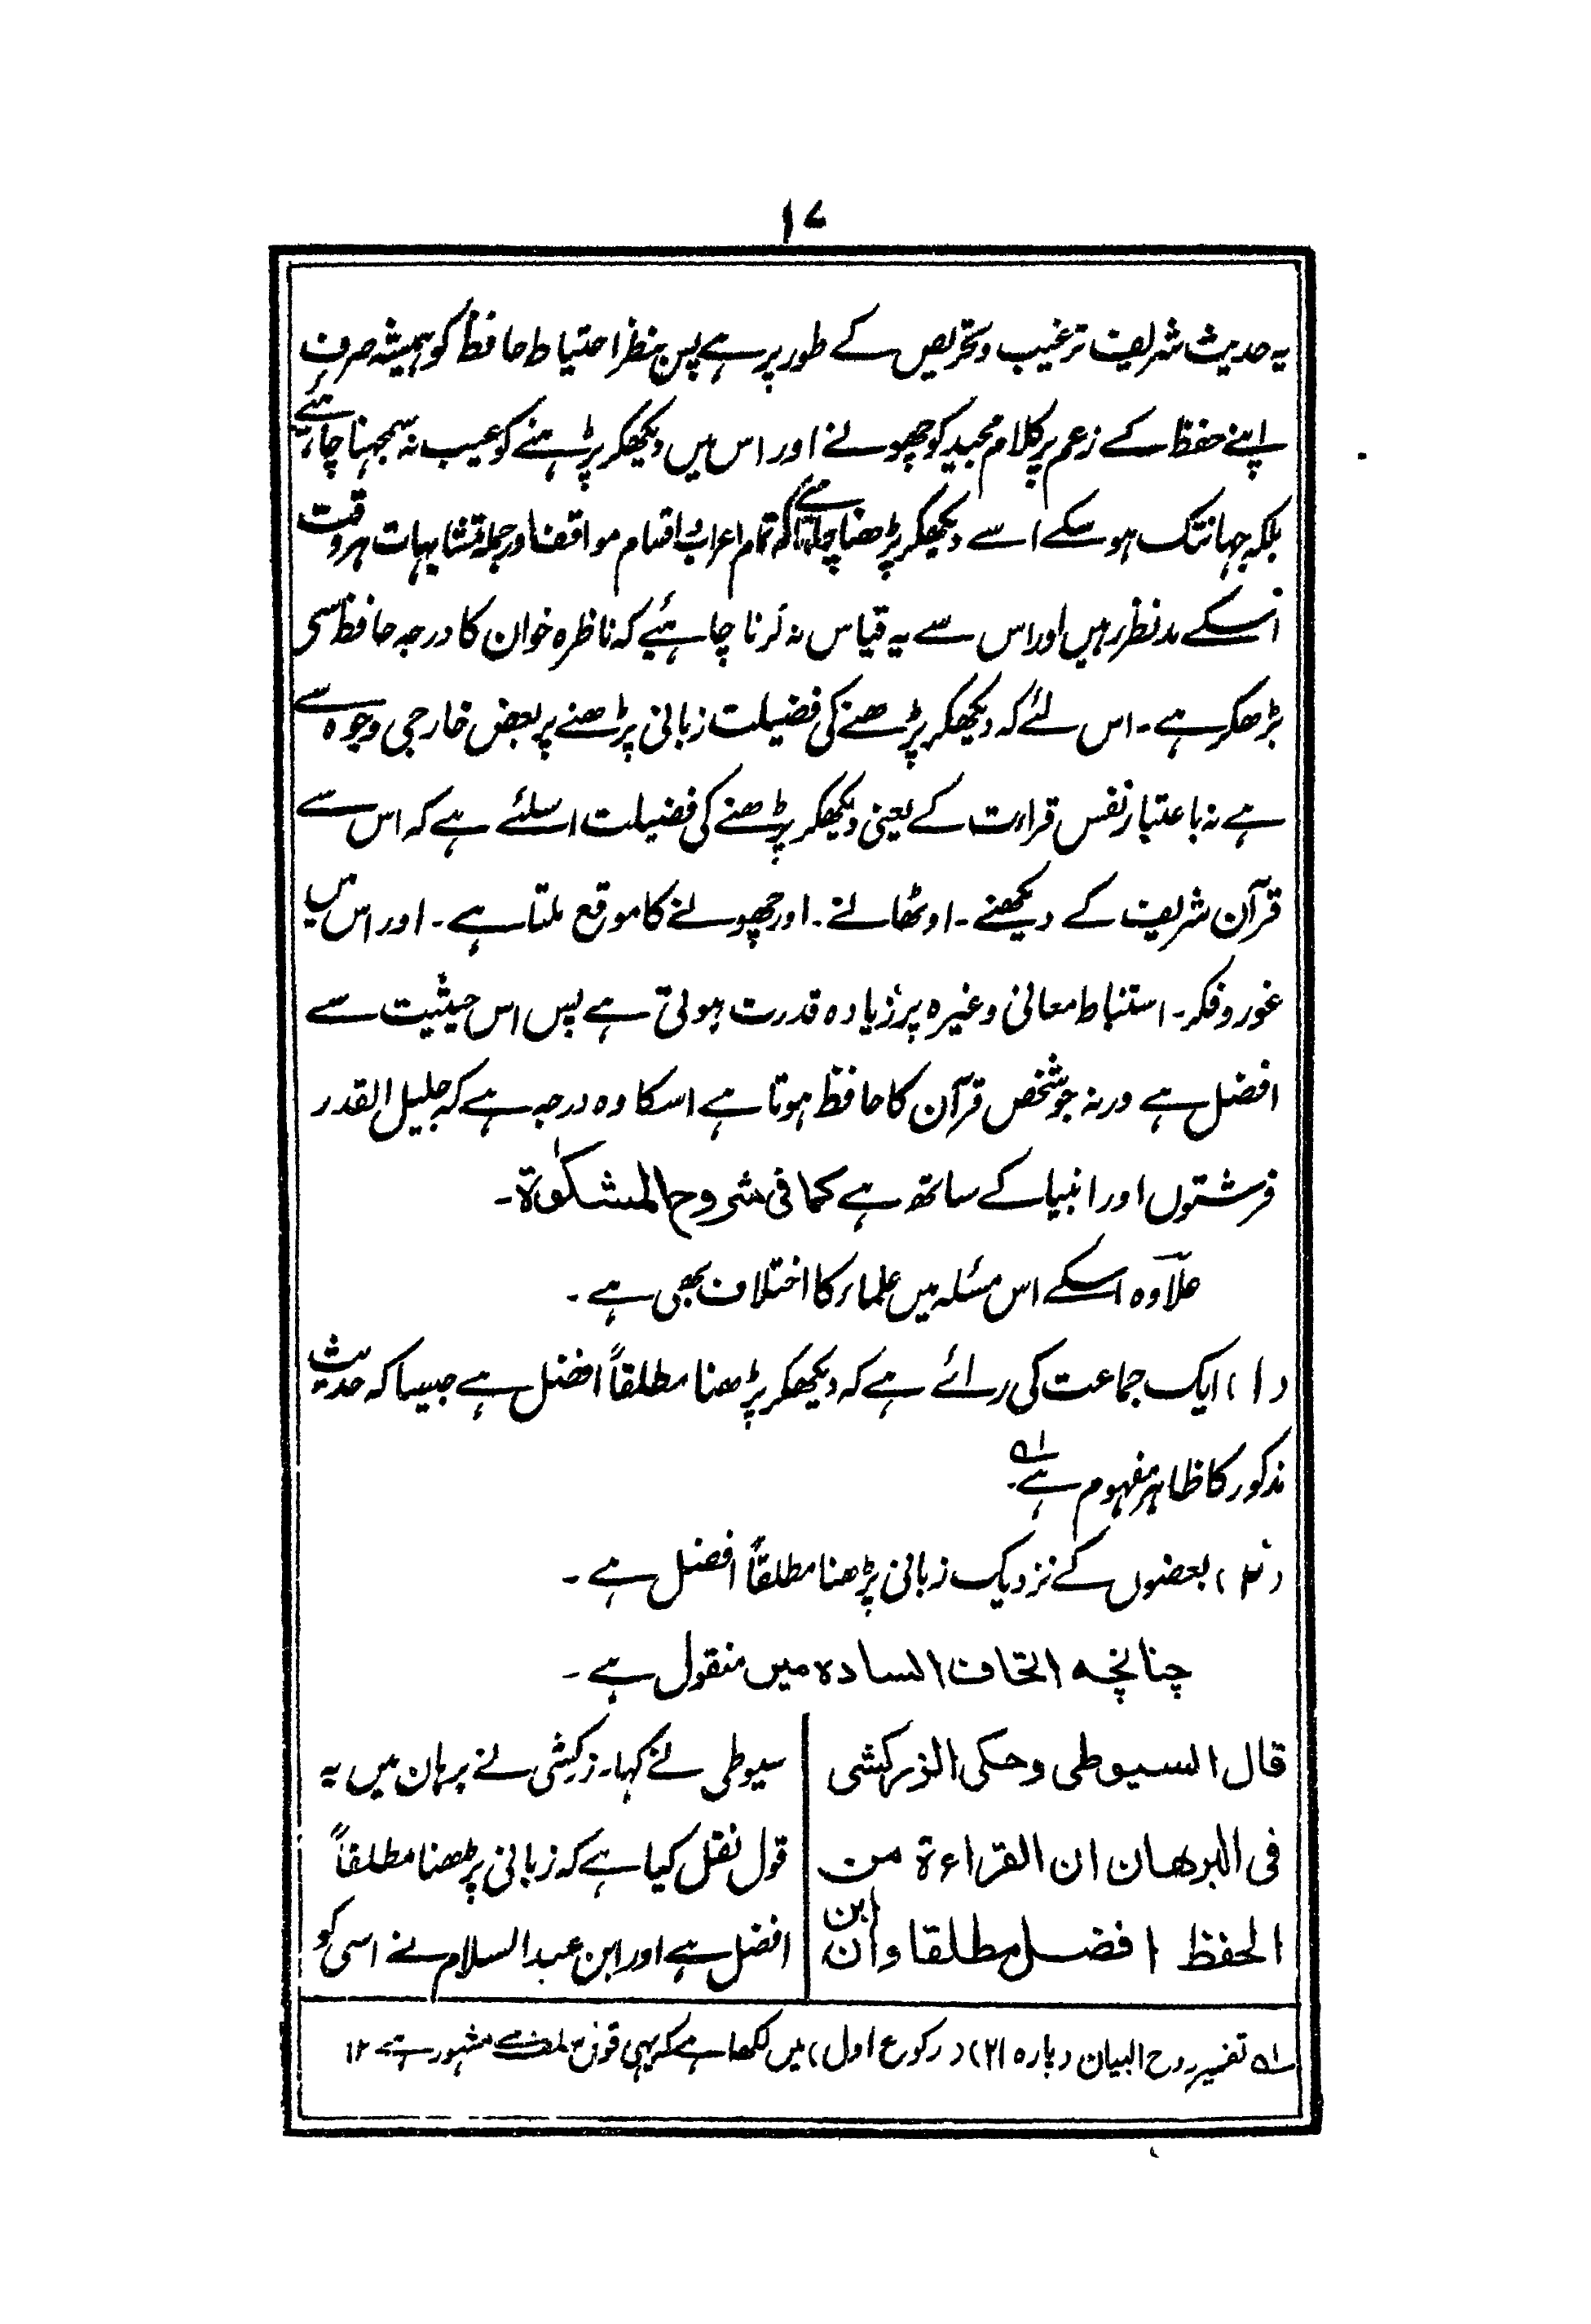 ۱۷
یہ حدیث شریف ترغیب و تحریص کے طور پر ہے پس بنظر احتیاط حافظ کو ہمیشہ صرف
اپنے حفظ کے زعم پر کلام مجید کو چھونے اور اس میں دیکھکر پڑہنے کو عیب نہ سمجہنا چاہئے
بلکہ جہانتک ہوسکے اسے دیکھکر پڑھنا چاہئے تاکہ تمام اعراب و اقسام مواقف اور جملہ متشابہات ہروقت
اسکے مدنظر رہیں اور اس سے یہ قیاس نہ کرنا چاہئیے کہ ناظرہ خوان کا درجہ حافظ سی
بڑھکر ہے۔ اس لئے کہ دیکھکر پڑھنے کی فضیلت زبانی پڑھنے پر بعض خارجی وجوہ سے
ہے نہ باعتبار نفس قراءت کے یعنی دیکھکر پڑھنے کی فضیلت اسلئے ہے کہ اس سے
قرآن شریف کے دیکھنے۔ اوٹھانے۔ اور چھونے کا موقع ملتا ہے۔ اور اس میں
غور و فکر۔ استنباط معانی وغیرہ پر زیادہ قدرت ہوتی ہے پس اس حیثیت سے
افضل ہے ورنہ جو شخص قرآن کا حافظ ہوتا ہے اسکا وہ درجہ ہے کہ جلیل القدر
فرشتوں اور انبیا کے ساتھ ہے کما فی شروح المشکوٰۃ۔
علاوہ اسکے اس مسئلہ میں علماء کا اختلاف بھی ہے۔
(۱) ایک جماعت کی رائے ہے کہ دیکھکر پڑھنا مطلقاً افضل ہے جیسا کہ حدیث
مذکور کا ظاہر مفہوم ہے۔ ؎۱
(۲) بعضوں کے نزدیک زبانی پڑھنا مطلقاً افضل ہے۔
چنانچہ اتحاف السادہ میں منقول ہے۔
قال السیوطی وحکی الزرکشی
فی البرھان ان القراءۃ من
الحفظ افضل مطلقا وان ابن
سیوطی نے کہا۔ زرکشی نے برہان میں یہ
قول نقل کیا ہے کہ زبانی پڑھنا مطلقاً
افضل ہے اور ابن عبدالسلام نے اسی کو
؎۱ تفسیر روح البیان (پارہ ۲۱) (رکوع اول) میں لکھا ہے کہ یہی قول سلف سے مشہور ہے ۱۲